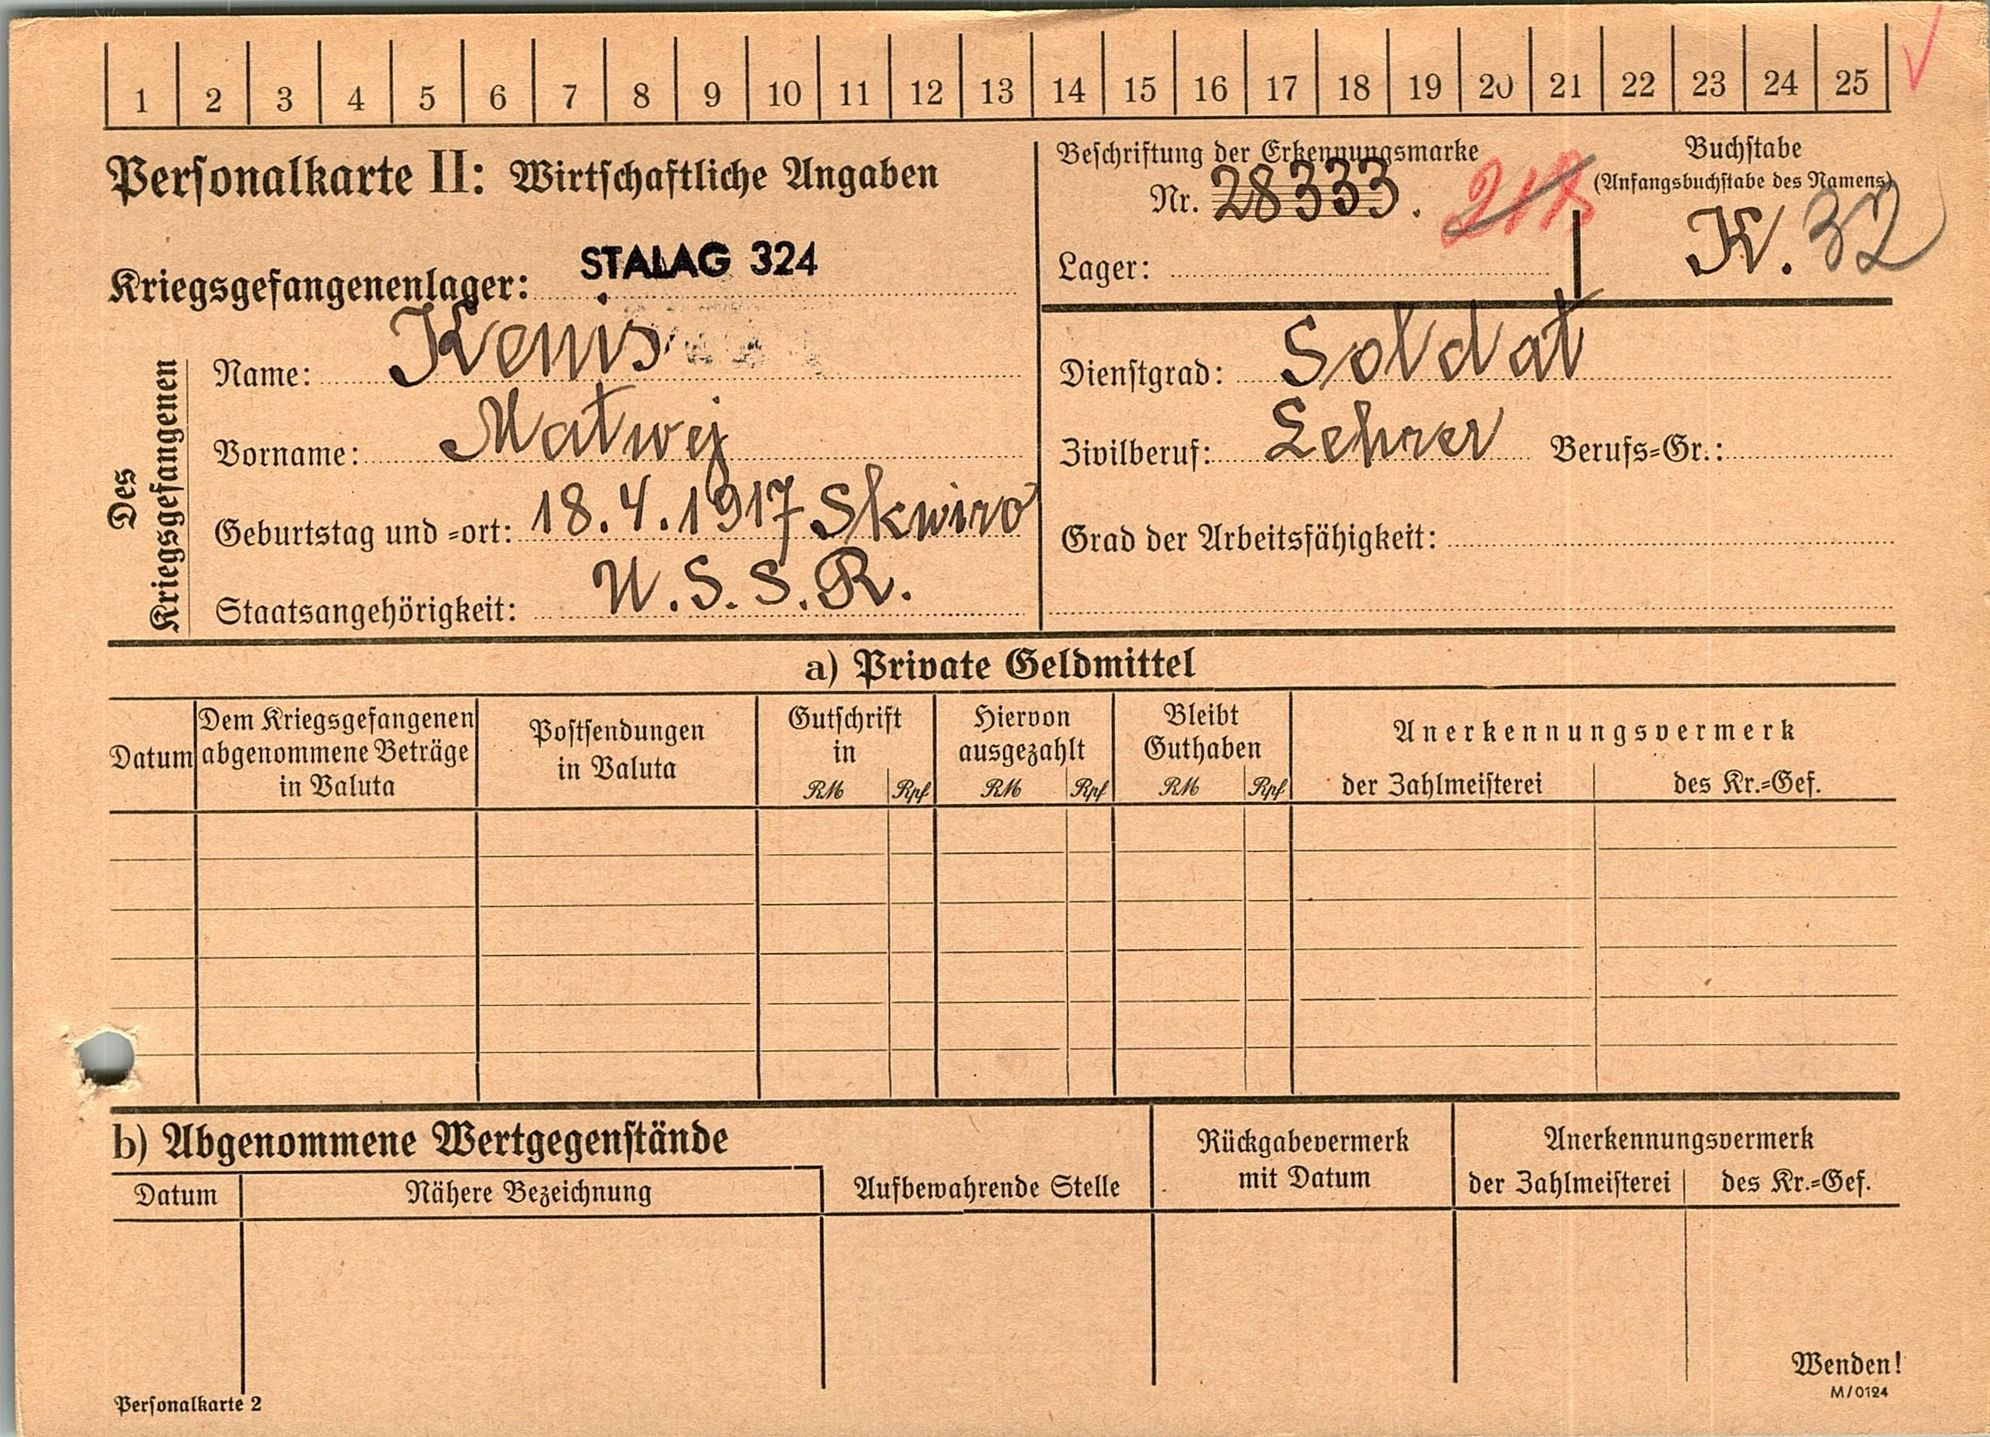 1 2 3 4 5 6 7 8 9 10 11 12 13 14 15 16 17 18 19 20 21 22 23 24 25
Personalkarte II: Wirtschaftliche Angaben
Beschriftung der Erkennungsmarke
Nr. 28333. 
Lager:
Buchstabe
(Anfangsbuchstabe des Namens)
K. 32
Kriegsgefangenenlager: STALAG 324
Des Kriegsgefangenen
Name:
Vorname: Matwej
Geburtstag und -ort: 18.4.1917 Skwiro
Staatsangehörigkeit: U.S.S.R.
Dienstgrad: Soldat
Zivilberuf: Lehrer Berufs-Gr.:
Grad der Arbeitsfähigkeit:
a) Private Geldmittel
Datum
Dem Kriegsgefangenen
abgenommene Beträge
in Valuta
Postsendungen
in Valuta
Gutschrift
in
RM Rpf
Hiervon
ausgezahlt
RM Rpf
Bleibt
Guthaben
RM Rpf
Anerkennungsvermerk
der Zahlmeisterei des Kr.-Gef.
b) Abgenommene Wertgegenstände
Datum Nähere Bezeichnung
Aufbewahrende Stelle
Rückgabevermerk
mit Datum
Anerkennungsvermerk
der Zahlmeisterei des Kr.-Gef.
Wenden!
M/0124
Personalkarte 2